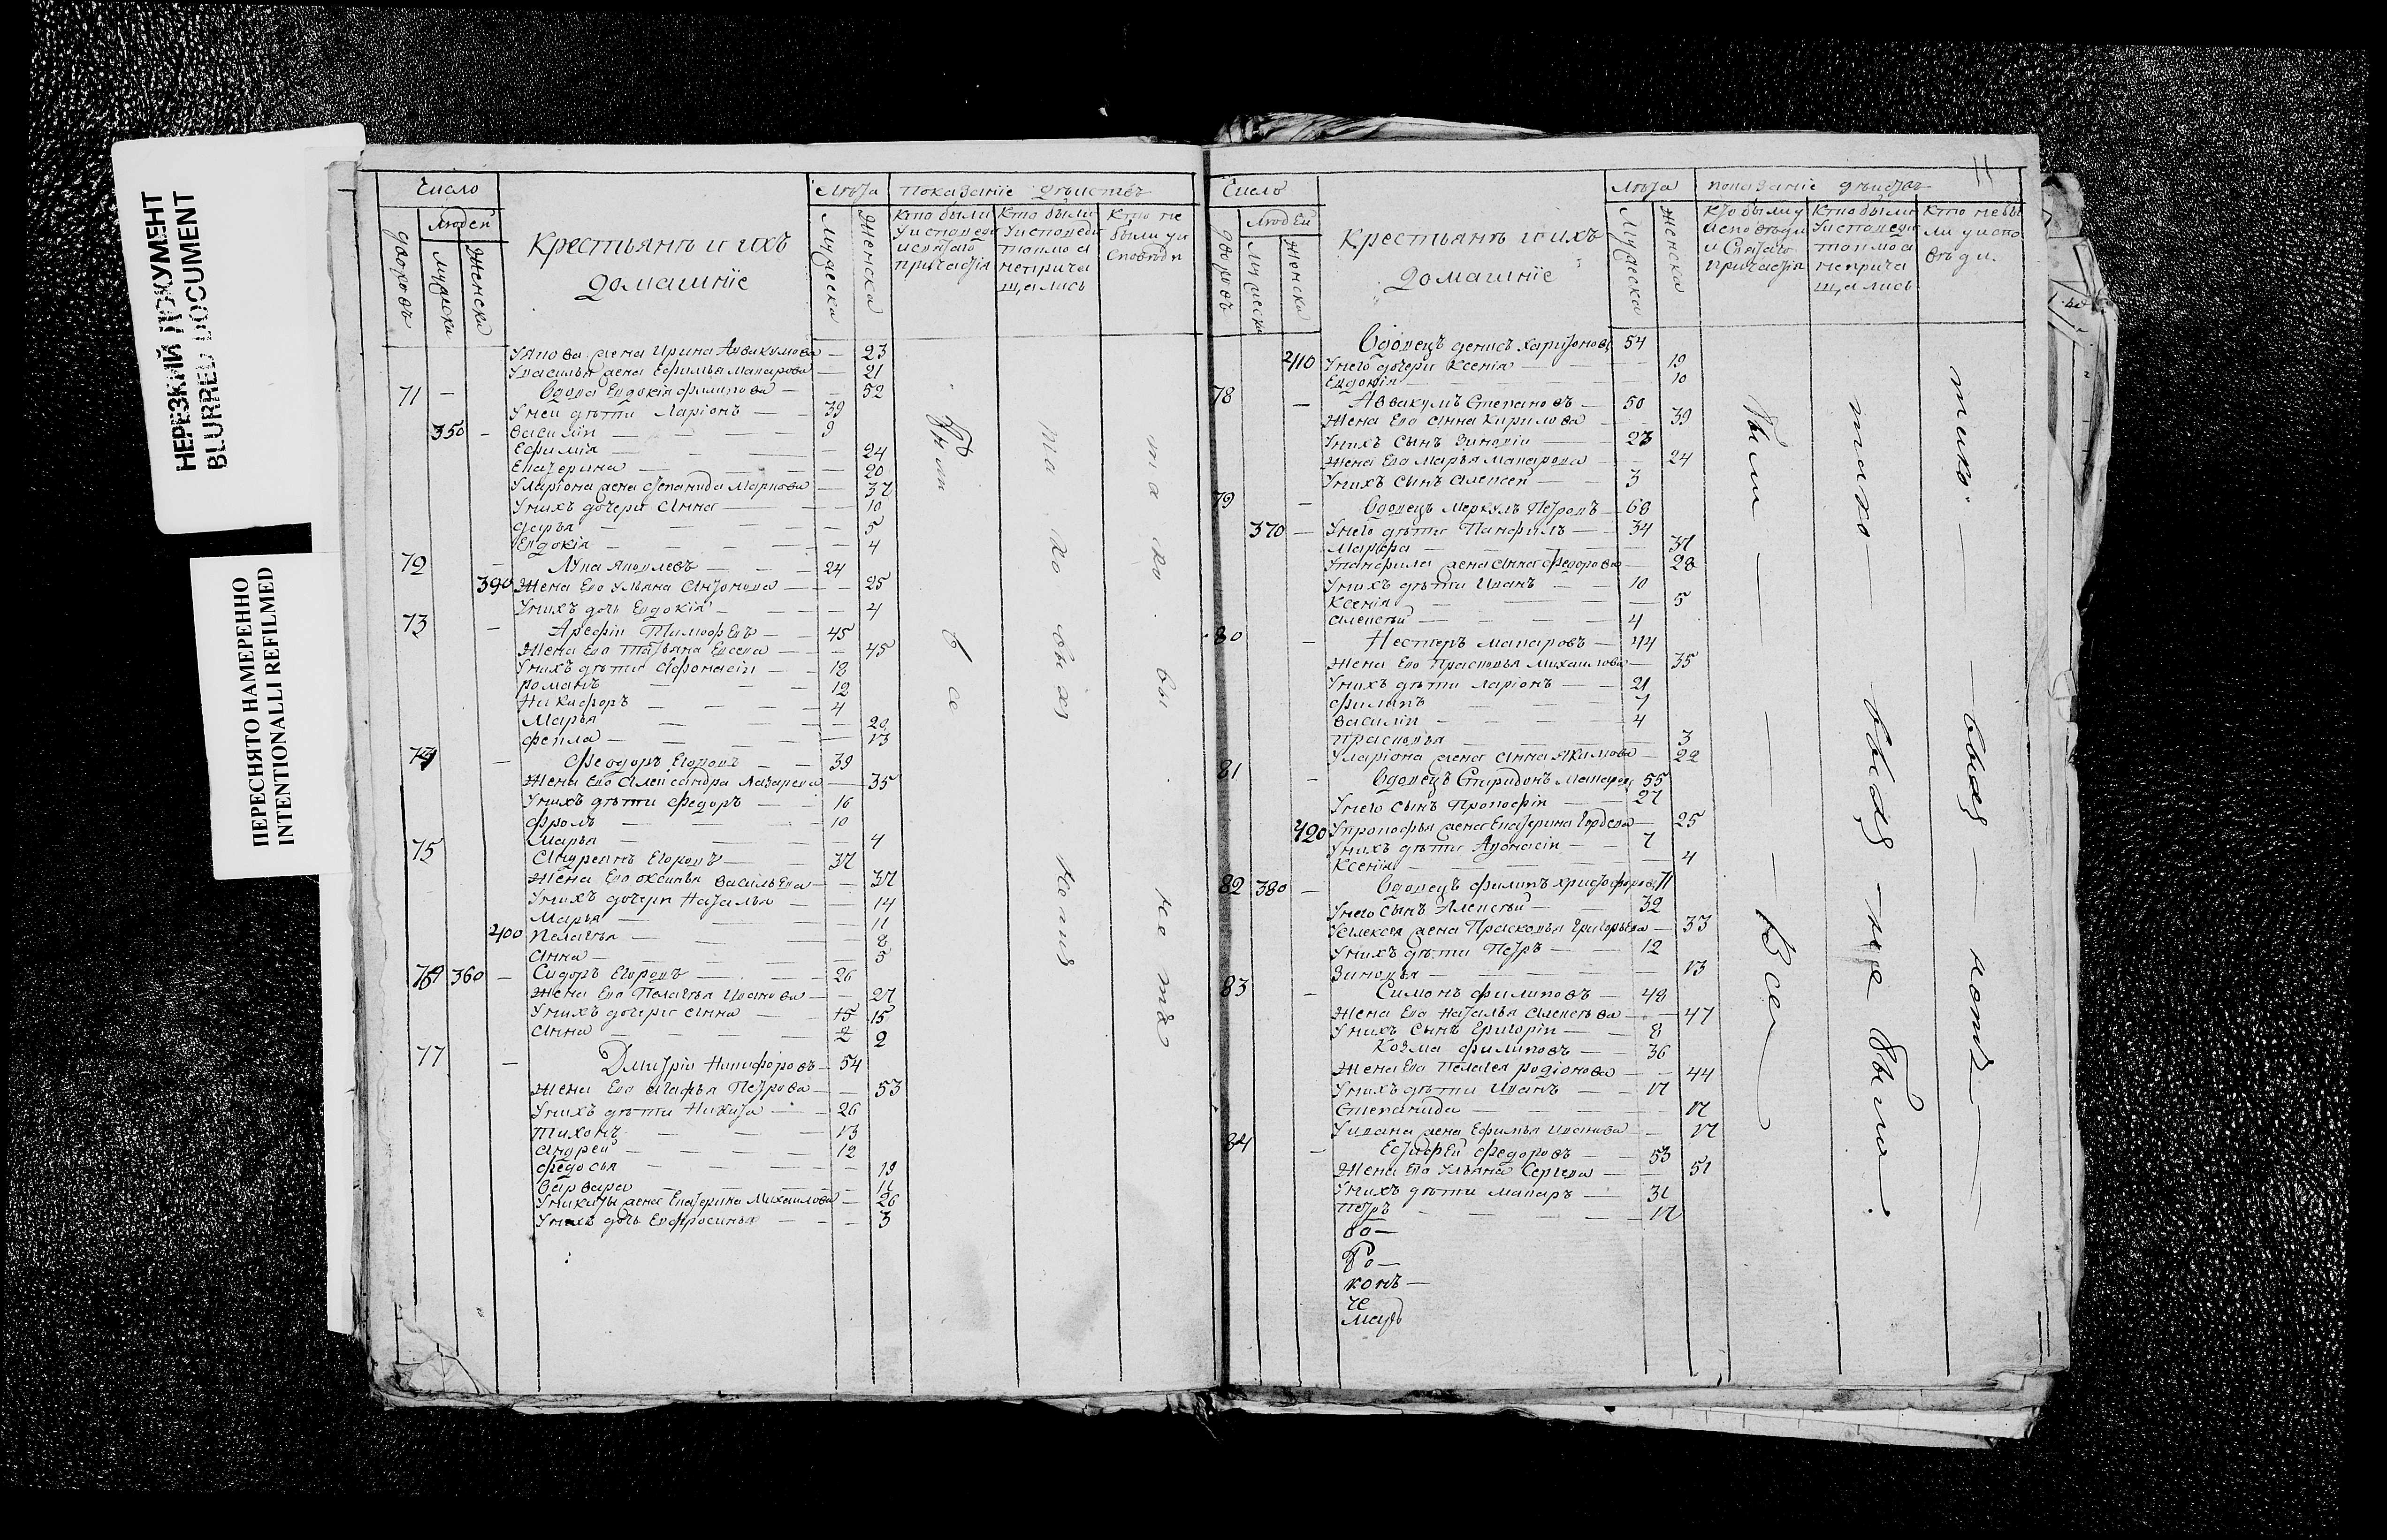 НЕРЕЗКИЙ ДОКУМЕНТ
BLURRED DOCUMENT
ПЕРЕСНЯТО НАМЕРЕННО
INTENTIONALLI REFILMED
Число
Людей
дворовъ
мужска
женска
Крестьянъ и ихъ
домашнїе
Лѣта
мужеска
женска
показанїе дѣиствъ
кто были
у исповеди
и святаго
причастїя
кто были
у исповеди
токмо а
непричащались
кто не
были у исповѣди
жена Ирина Аввакумова — 23
жена Ефимья Макарова — 21
71 — Вдова Евдокїя Филипова — 52
У неи дѣти Ларїонъ — 39
350 — Василїи — 9
Ефимїя — 24
Екатерина — 20
У Ларїона жена Степанида Маркова — 37
У нихъ дочери Анна — 10
Дарья — 5
Евдокїя — 4
72 — Лука Яковлевъ — 24
390 Жена Ево Ульяна Антонова — 25
У нихъ дочь Евдокїя — 4
73 — Арефїи Тимофѣевъ — 45
Жена Ево Татьяна Евсева — 45
У нихъ дѣти Афонасїи — 18
Романъ — 12
Никифоръ — 4
Марья — 20
Фекла — 13
74 — Феодоръ Егоровъ — 39
Жена Ево Александра Назарева — 35
У нихъ дѣти Федоръ — 16
Фролъ — 10
Марья — 4
75 Андреянъ Егоровъ — 37
Жена Ево Оксинья Васильева — 37
У нихъ дочери Наталья — 14
Марья — 11
400 Пелагея — 8
Анна — 5
76 360 — Сидоръ Егоровъ — 26
Жена Ево Пелагея Иванова — 27
У нихъ дочери Анна — 15 15
Анна — 2 2
77 — Дмитрїи Никифоровъ — 54
Жена Ево Агафья Петрова — 53
У нихъ дѣти Никита — 26
Тихонъ — 13
Андреи — 12
Федосья — 19
Варвара — 11
У Никиты жена Екатерина Михаилова — 26
У нихъ дочь Евфросинья — 3
Число
Людей
дворовъ
женска
Крестьянъ и ихъ
домашнїе
Лѣта
мужеска
женска
показанїе дѣиствъ
кто были у
исповѣди
и Святаго
причастїя
кто были
у исповеди
токмо а
непричащались
кто не были у исповѣди.
Вдовецъ Денисъ Харитоновъ 54
410 У него дочери Ксенїя — 19
Евдокїя — 10
78 — Аввакумъ Степановъ — 50
Жена Ево Анна Кирилова — 39
У нихъ сынъ Зиновїи — 23
Жена Ево Марья Макарова — 24
У нихъ сынъ Алексеи — 3
79 — Вдовецъ Меркулъ Петровъ — 68
370 — У него дѣти Панфилъ — 34
Марфа — 37
У Панфила жена Анна Федорова — 28
У нихъ дѣти Иванъ — 10
Ксенїя — 5
Алексѣй — 4
80 — Нестеръ Макаровъ — 44
Жена Ево Прасковья Михаилова — 35
У нихъ дѣти Ларїонъ — 21
Филипъ — 7
Василїи — 4
Прасковья — 3
У Ларїона жена Анна Якимова — 22
81 — Вдовецъ Спиридонъ Макаровъ 55
У него сынъ Прокофїи — 27
420 У Прокофья жена Екатерина Гордева — 25
У нихъ дѣти Афонасїи — 7
Ксенїя — 4
82 380 — Вдовецъ Филипъ Христофоровъ 71
У него сынъ Алексѣй — 32
У Алексея жена Прасковья Григорьева — 33
У нихъ дѣти Петръ — 12
Зиновья — 13
83 — Симонъ Филиповъ — 48
Жена Ево Наталья Алексѣева — 47
У нихъ сынъ Григорїи — 8
Козма Филиповъ — 36
Жена Ево Пелагея Родїонова — 44
У нихъ дѣти Иванъ — 17
Степанида — 17
У Ивана жена Ефимья Иванова — 17
84 — Федоровъ — 53
Жена Ево Ульяна Сергева — 51
У нихъ дѣти Макаръ — 31
Петръ — 17
конъ —
че
Были — Все